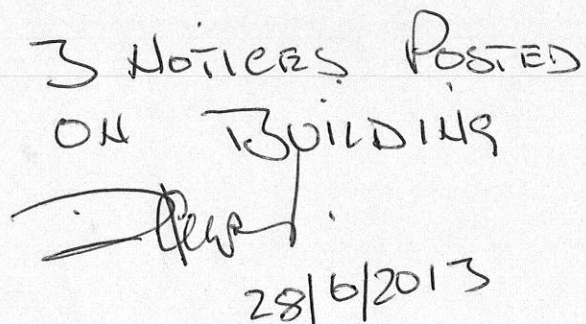 3 NOTICES POSTED
ON BUILDING
28/6/2013